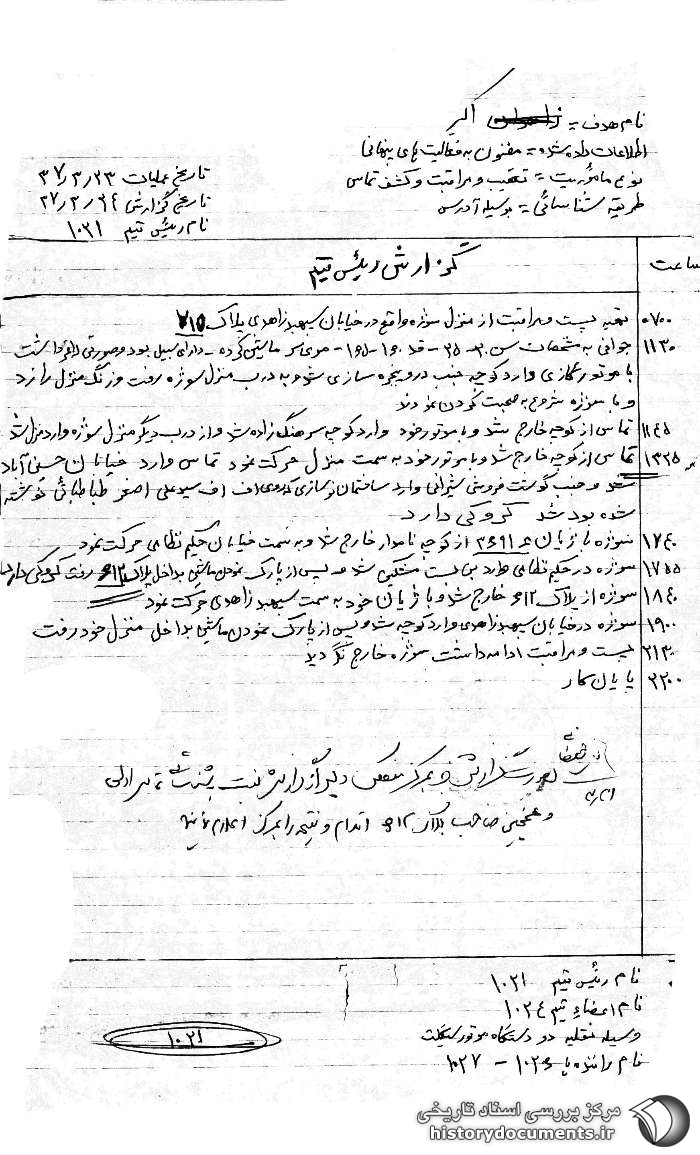 نام هدف = اکبر
اطلاعات داده شده = مظنون به فعالیت های پنهانی
نوع ماموریت = تعقیب و مراقبت و کشف تماس
طریقه شناسائی = بوسیله آدرس
تاریخ عملیات ۳۷/۳/۲۳
تاریخ گزارش ۳۷/۳/۲۴
نام رئیس تیم ۱۰۲۱
ساعت گزارش رئیس تیم
۰۷۰۰ تهیه پست و مراقبت از منزل سوژه واقع در خیابان سپهبد زاهدی پلاک ۷۱۵
۱۱۳۰ جوانی به مشخصات سن ۳۰-۳۵ قد ۱۶۰-۱۶۵ موی سر ماشین کرده - دارای سبیل بود و صورتی لاغر داشت
با موتور گازی وارد کوچه جنب در و پنجره سازی شد و به درب منزل سوژه رفت و زنگ منزل را زد
و با سوژه شروع به صحبت کردن نمودند
۱۱۴۵ تماسی از کوچه خارج شد و با موتور خود وارد کوچه سرهنگ زاده شد و از درب دیگر منزل سوژه وارد منزل شد
۱۳۲۵ تماسی از کوچه خارج شد و با موتور خود به سمت منزل حرکت نمود تماسی وارد خیابان حسین آباد
شد و جنب گوشت فروشی شیرانی وارد ساختمان نوسازی که روی اف اف سید علی اصغر طباطبائی نوشته
شده بود شد کروکی دارد
۱۷۴۰ سوژه با ژیان از کوچه ناموار خارج شد و به سمت خیابان حکیم نظامی حرکت نمود
۱۷۵۵ سوژه در حکیم نظامی وارد بن بست مشکی شد و پس از پارک نمودن ماشین بداخل پلاک ۶۱۲ رفت کروکی دارد
۱۸۴۰ سوژه از پلاک ۶۱۲ خارج شد و با ژیان خود به سمت سپهبد زاهدی حرکت نمود
۱۹۰۰ سوژه در خیابان سپهبد زاهدی وارد کوچه شد و پس از پارک نمودن ماشین بداخل منزل خود رفت
۲۱۳۰ پست و مراقبت ادامه داشت سوژه خارج نگردید
۲۲۰۰ پایان کار
گزارش به مرکز منعکس
و همچنین صاحب پلاک ۶۱۲ اقدام و نتیجه را به مرکز اعلام نمائید
نام رئیس تیم ۱۰۲۱
نام اعضاء تیم ۱۰۲۴
وسیله نقلیه دو دستگاه موتورسیکلت
نام راننده ها ۱۰۲۶ - ۱۰۲۷
۱۰۲۱
مرکز بررسی اسناد تاریخی
historydocuments.ir